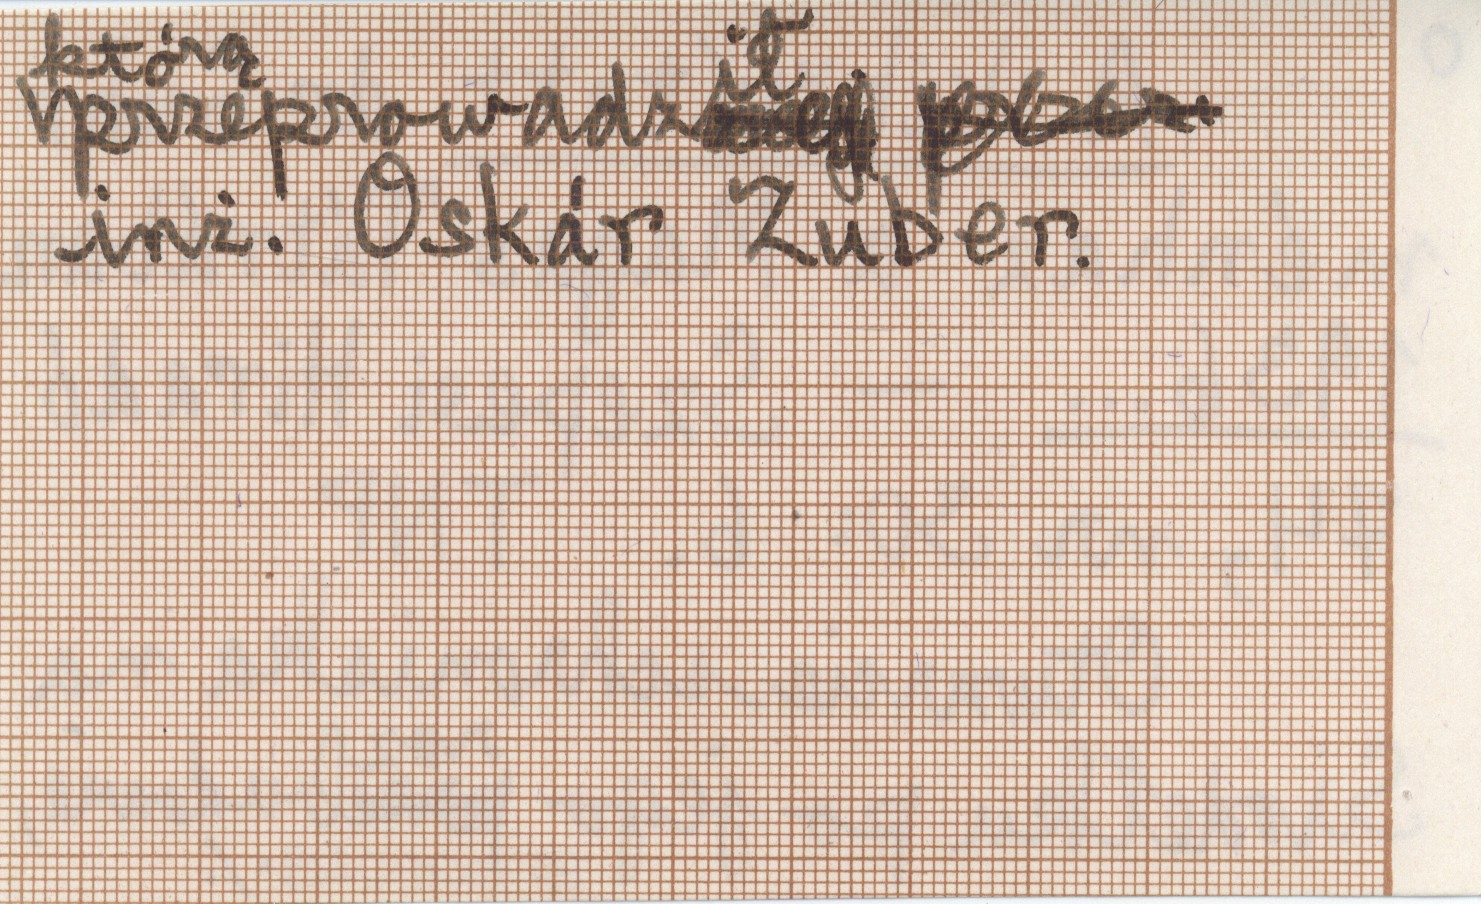 którą
przeprowadził
inż. Oskár Zuber.